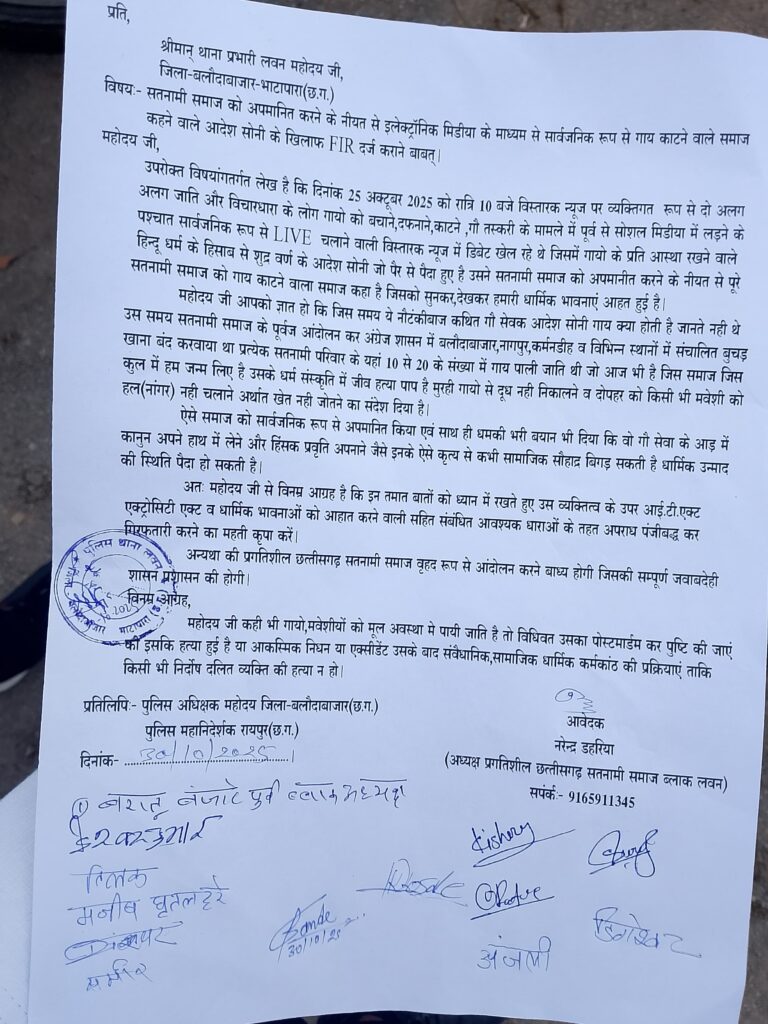 प्रति,
श्रीमान् थाना प्रभारी लवन महोदय जी,
जिला-बलौदाबाजार-भाटापारा(छ.ग.)
विषयः- सतनामी समाज को अपमानित करने के नीयत से इलेक्ट्रॉनिक मिडीया के माध्यम से सार्वजनिक रूप से गाय काटने वाले समाज
कहने वाले आदेश सोनी के खिलाफ FIR दर्ज कराने बाबत्।
महोदय जी,
उपरोक्त विषयांगतर्गत लेख है कि दिनांक 25 अक्टूबर 2025 को रात्रि 10 बजे विस्तारक न्यूज पर व्यक्तिगत रूप से दो अलग
अलग जाति और विचारधारा के लोग गायो को बचाने,दफनाने,काटने ,गौ तस्करी के मामले में पूर्व से सोशल मिडीया में लड़ने के
पश्चात सार्वजनिक रूप से LIVE चलाने वाली विस्तारक न्यूज में डिबेट खेल रहे थे जिसमें गायो के प्रति आस्था रखने वाले
हिन्दू धर्म के हिसाब से शुद्र वर्ण के आदेश सोनी जो पैर से पैदा हुए है उसने सतनामी समाज को अपमानीत करने के नीयत से पूरे
सतनामी समाज को गाय काटने वाला समाज कहा है जिसको सुनकर,देखकर हमारी धार्मिक भावनाएं आहत हुई है।
महोदय जी आपको ज्ञात हो कि जिस समय ये नौटंकीबाज कथित गौ सेवक आदेश सोनी गाय क्या होती है जानते नही थे
उस समय सतनामी समाज के पूर्वज आंदोलन कर अंग्रेज शासन में बलौदाबाजार,नागपुर,कर्मनडीह व विभिन्न स्थानों में संचालित बुचड़
खाना बंद करवाया था प्रत्येक सतनामी परिवार के यहां 10 से 20 के संख्या में गाय पाली जाति थी जो आज भी है जिस समाज जिस
कुल में हम जन्म लिए है उसके धर्म संस्कृति में जीव हत्या पाप है मुरही गायो से दूध नही निकालने व दोपहर को किसी भी मवेशी को
हल(नांगर) नही चलाने अर्थात खेत नही जोतने का संदेश दिया है।
ऐसे समाज को सार्वजनिक रूप से अपमानित किया एवं साथ ही धमकी भरी बयान भी दिया कि वो गौ सेवा के आड़ में
कानुन अपने हाथ में लेने और हिंसक प्रवृति अपनाने जैसे इनके ऐसे कृत्य से कभी सामाजिक सौहाद्र बिगड़ सकती है धार्मिक उन्माद
की स्थिति पैदा हो सकती है।
अतः महोदय जी से विनम्र आग्रह है कि इन तमात बातों को ध्यान में रखते हुए उस व्यक्तित्व के उपर आई.टी.एक्ट
एक्ट्रोसिटी एक्ट व धार्मिक भावनाओं को आहात करने वाली सहित संबंधित आवश्यक धाराओं के तहत अपराध पंजीबद्ध कर
गिरफतारी करने का महती कृपा करें।
अन्यथा की प्रगतिशील छत्तीसगढ़ सतनामी समाज वृहद रूप से आंदोलन करने बाध्य होगी जिसकी सम्पूर्ण जवाबदेही
शासन प्रशासन की होगी।
पुलिस थाना लवन
विनम्र आग्रह,
महोदय जी कही भी गायो,मवेशीयों को मूल अवस्था मे पायी जाति है तो विधिवत उसका पोस्टमार्डम कर पुष्टि की जाएं
की इसकि हत्या हुई है या आकस्मिक निधन या एक्सीडेंट उसके बाद संवैधानिक,सामाजिक धार्मिक कर्मकांठ की प्रक्रियाएं ताकि
किसी भी निर्दोष दलित व्यक्ति की हत्या न हो।
प्रतिलिपिः- पुलिस अधिक्षक महोदय जिला-बलौदाबाजार(छ.ग.)
पुलिस महानिदेर्शक रायपुर(छ.ग.)
दिनांक- 30/10/2025
आवेदक
नरेन्द्र डहरिया
(अध्यक्ष प्रगतिशील छत्तीसगढ़ सतनामी समाज ब्लाक लवन)
सपंर्कः- 9165911345
(1) बरातू बंजारे पुर्व ब्लाक अध्यक्ष
Kishory
तिलक
मनीष घृतलहरे
30/10/25
अंजली
डिगेश्वर
समीर